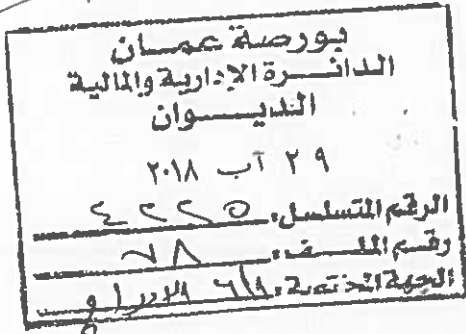 بورصة عمان
الدائرة الإدارية والمالية
الديوان
٢٩ آب ٢٠١٨
الرقم المتسلسل: ٤٢٢٥
رقم الملف:
الجهة المختصة: